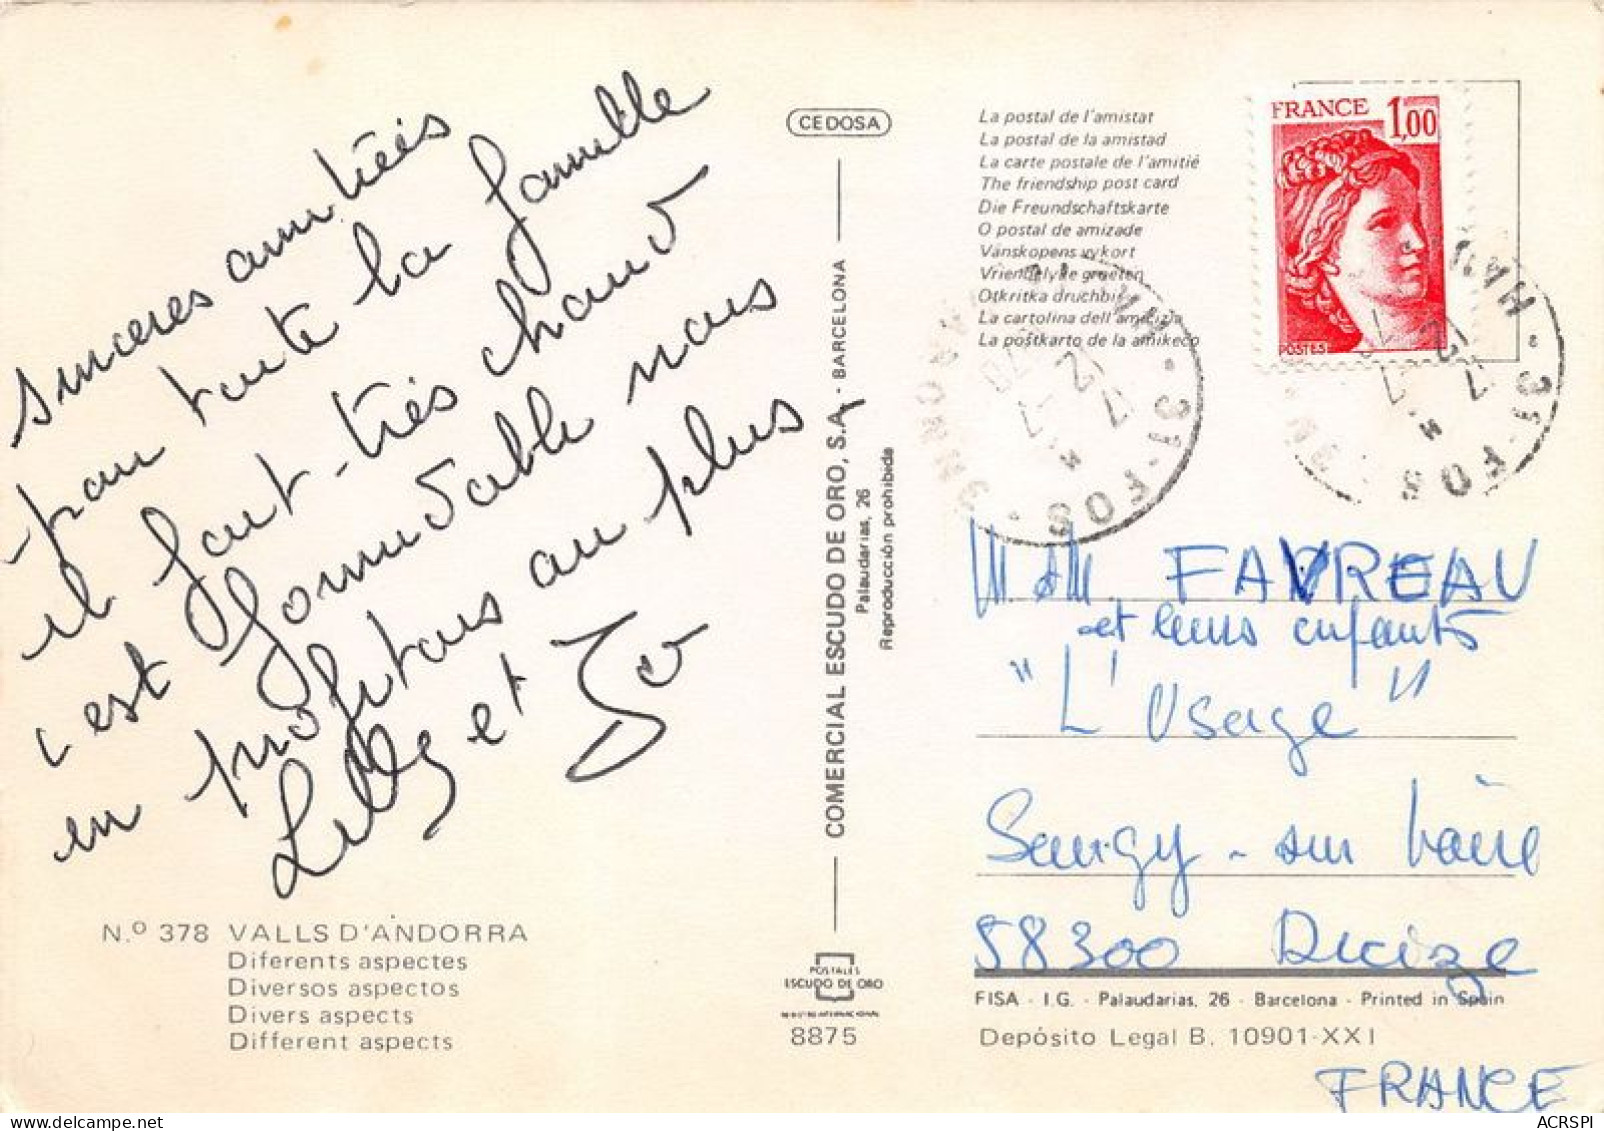 sincères amitiés
pour toute la famille
il fait très chaud
c'est formidable nous
en profitons au plus
Lilly et Jo
N.º 378 VALLS D'ANDORRA
Diferents aspectes
Diversos aspectos
Divers aspects
Different aspects
CEDOSA
COMERCIAL ESCUDO DE ORO, S.A. - BARCELONA
Palaudarias, 26
Reproducción prohibida
POSTALES
ESCUDO DE ORO
8875
La postal de l'amistat
La postal de la amistad
La carte postale de l'amitié
The friendship post card
Die Freundschaftskarte
O postal de amizade
Vänskopens vykort
Vriendelyke groeten
Otkritka druchbis
La cartolina dell'amicizia
La poŝtkarto de la amikeco
FRANCE
1,00
POSTES
31 - FOS
31 - FOS
M. et M. FAVREAU
et leurs enfants
"L'Usage"
Sougy - sur Loire
58300 Decize
FISA - I.G. - Palaudarias, 26 - Barcelona - Printed in Spain
Depósito Legal B. 10901-XXI
FRANCE
ACRSPI